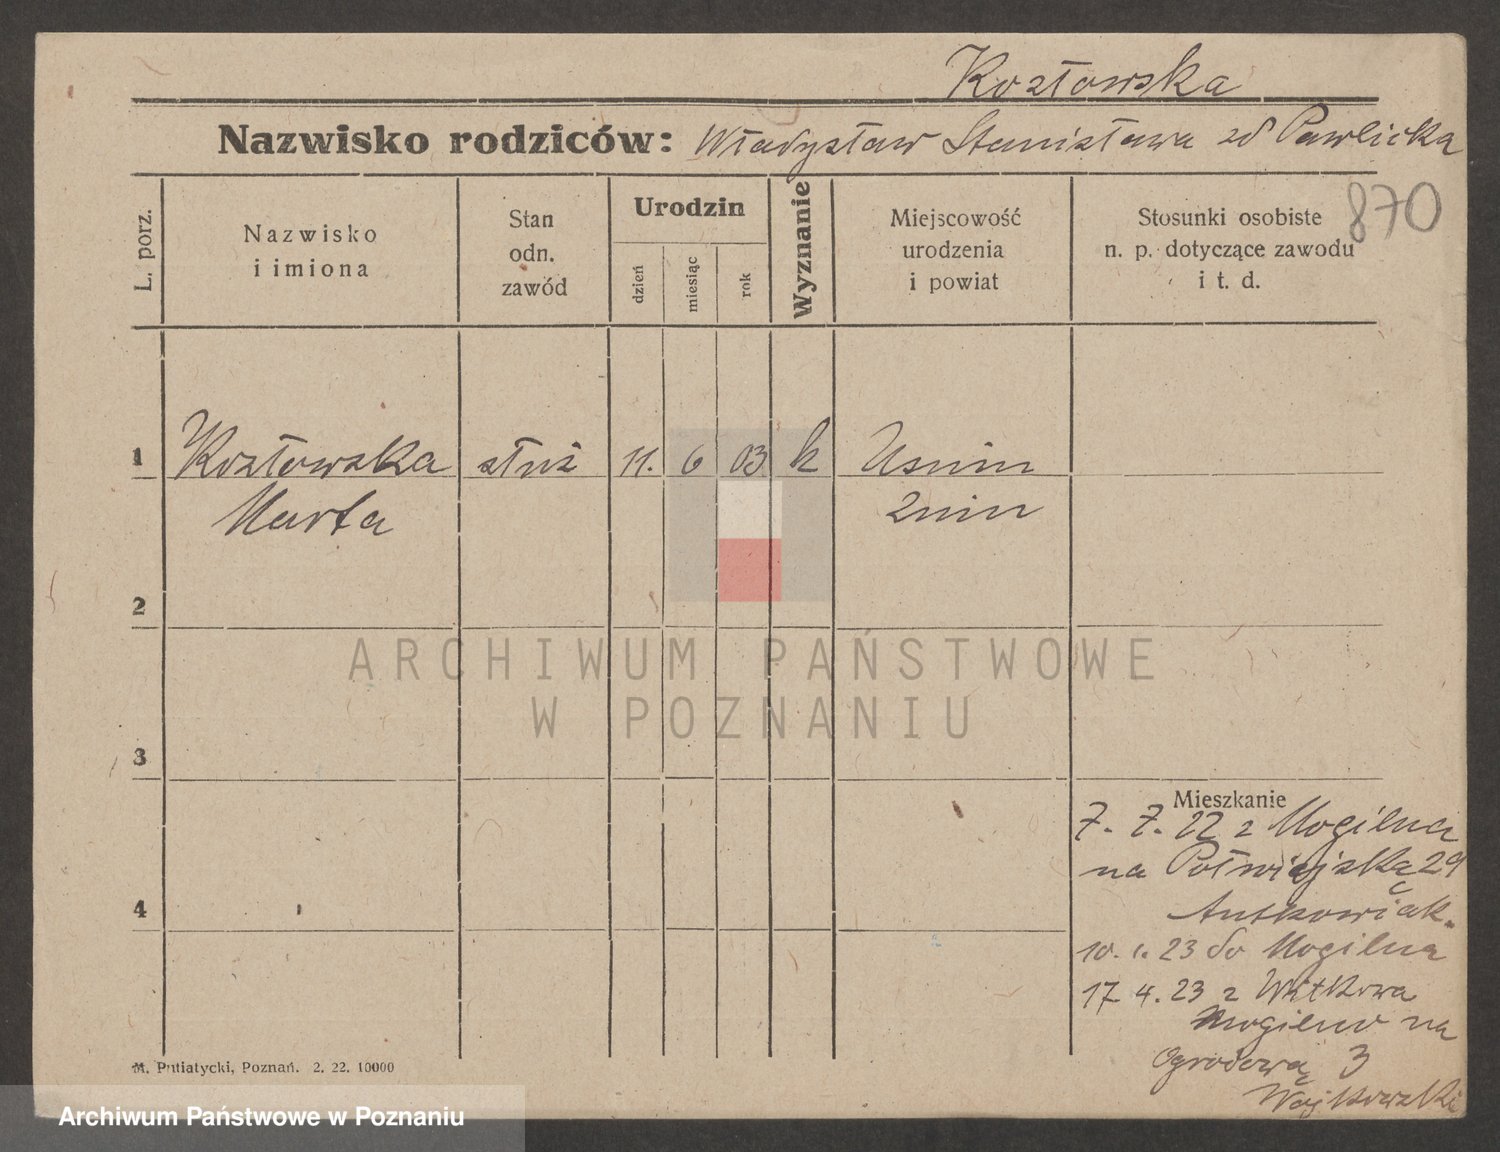 Kozłowska
Nazwisko rodziców: Władysław Stanisława zd Pawlicka
870
L. porz.
Nazwisko
i imiona
Stan
odn.
zawód
Urodzin
dzień
miesiąc
rok
Wyznanie
Miejscowość
urodzenia
i powiat
Stosunki osobiste
n. p. dotyczące zawodu
i t. d.
1 Kozłowska służ 11. 6 03 k Usnin
Marta Znin
2
ARCHIWUM PAŃSTWOWE
W POZNANIU
3
Mieszkanie
7. 7. 22 z Mogilna
na Półwiejską 29
Antkowiak.
4
10. 1. 23 do Mogilna
17 4. 23 z Witkowa
Mogilno na
Ogrodową 3
M. Putiatycki, Poznań. 2. 22. 10000
Archiwum Państwowe w Poznaniu